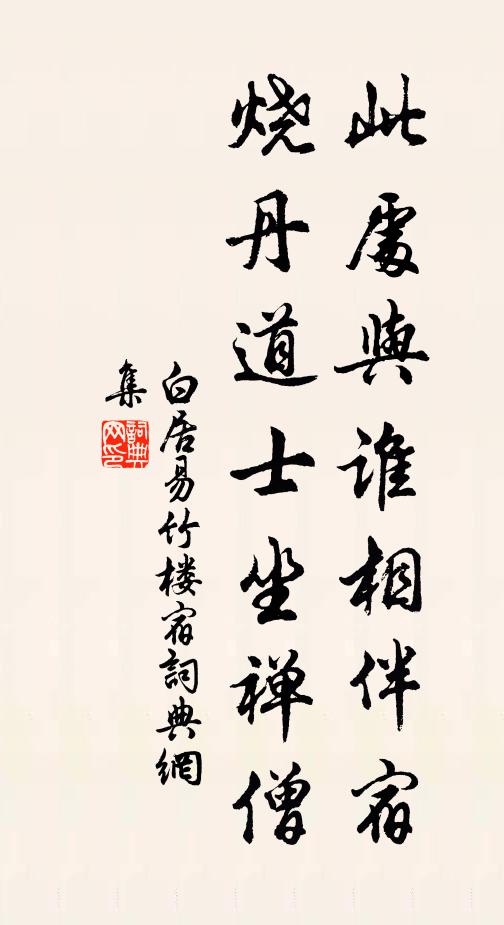 此處與誰相伴宿
烧丹道士坐禅僧
白居易竹楼宿詞典網
集
詞典
网印